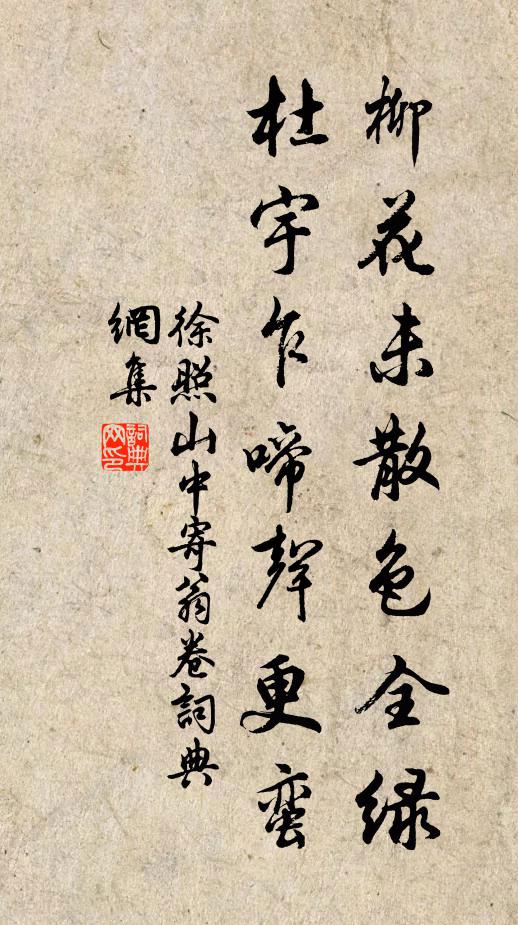 柳花未散色全緑
杜宇乍啼聲更蛮
徐照山中寄翁卷詞典
網集
詞典网印